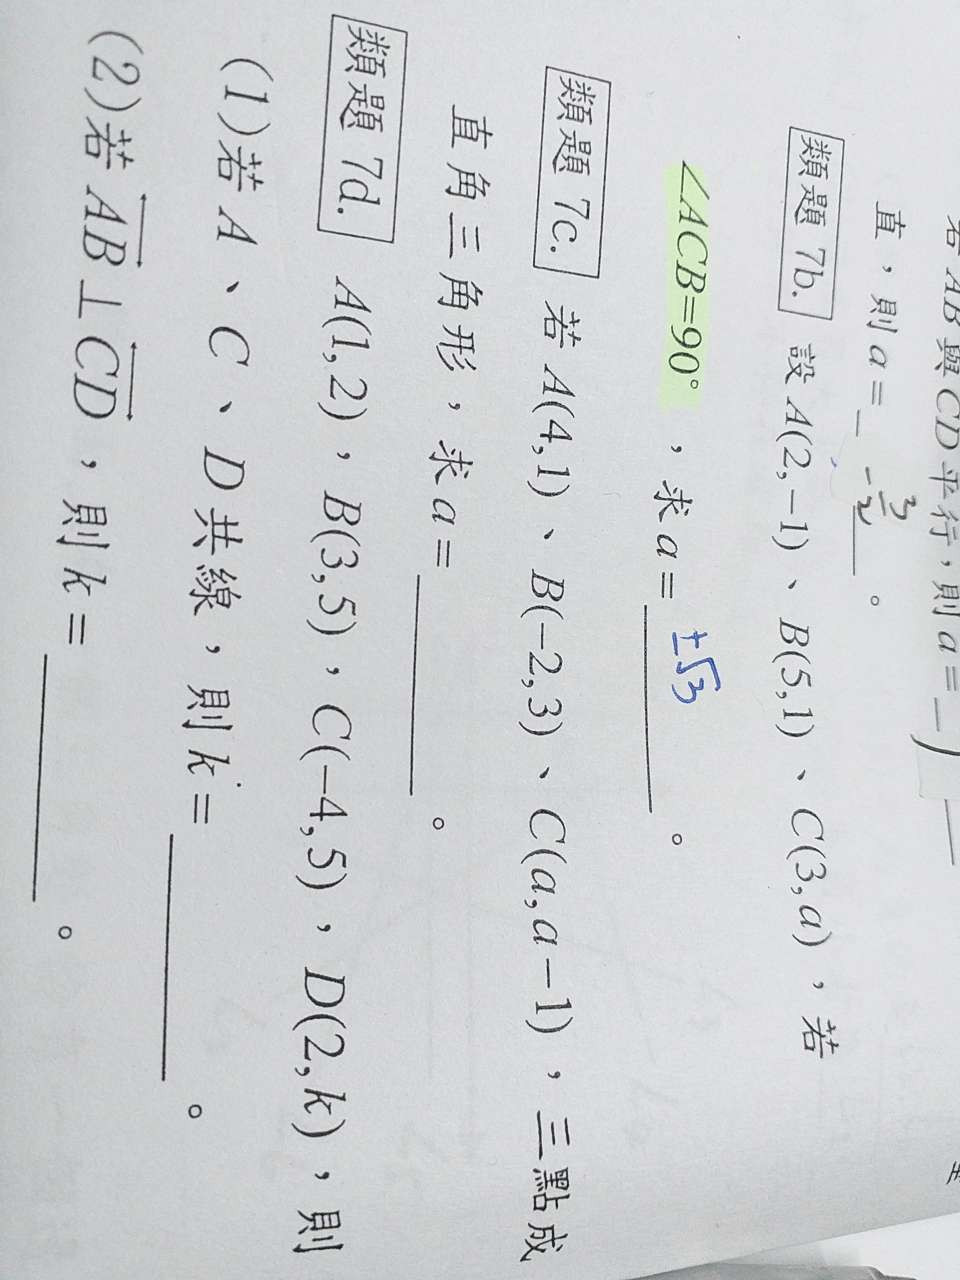 若 AB 與 CD 平行，則 a = 
直，則 a = -3/2 。
類題 7b. 設 A(2,−1)、B(5,1)、C(3,a)，若
∠ACB=90°，求 a = ±√3 。
類題 7c. 若 A(4,1)、B(−2,3)、C(a,a−1)，三點成
直角三角形，求 a = 。
類題 7d. A(1,2)，B(3,5)，C(−4,5)，D(2,k)，則
(1)若 A、C、D 共線，則 k = 。
(2)若 AB⊥CD，則 k = 。